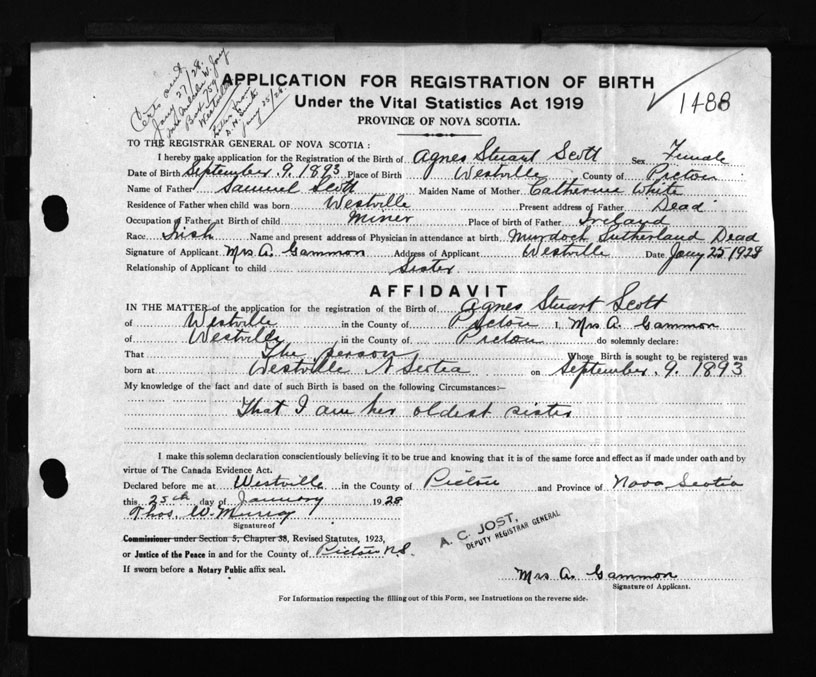 Certs sent
Jany 27/28.
Box 759
Westville
Jany 25/28.
APPLICATION FOR REGISTRATION OF BIRTH
Under the Vital Statistics Act 1919
PROVINCE OF NOVA SCOTIA.
1488
TO THE REGISTRAR GENERAL OF NOVA SCOTIA:
I hereby make application for the Registration of the Birth of Agnes Stuart Scott Sex Female
Date of Birth September. 9. 1893 Place of Birth Westville County of Pictou
Name of Father Samuel Scott Maiden Name of Mother Catherine White
Residence of Father when child was born Westville Present address of Father Dead
Occupation of Father at Birth of child Miner Place of birth of Father Ireland
Race Irish Name and present address of Physician in attendance at birth Murdoch Sutherland Dead
Signature of Applicant Mrs A. Gammon Address of Applicant Westville Date Jany 25 1928
Relationship of Applicant to child Sister
AFFIDAVIT
IN THE MATTER of the application for the registration of the Birth of Agnes Stuart Scott
of Westville in the County of Pictou I, Mrs A. Gammon
of Westville in the County of Pictou do solemnly declare:
That The person Whose Birth is sought to be registered was
born at Westville N Scotia on September. 9. 1893
My knowledge of the fact and date of such Birth is based on the following Circumstances:
That I am her oldest sister
I make this solemn declaration conscientiously believing it to be true and knowing that it is of the same force and effect as if made under oath and by
virtue of The Canada Evidence Act.
Declared before me at Westville in the County of Pictou and Province of Nova Scotia
this 25th day of January 1928
Thos. W.
Signature of
Commissioner under Section 5, Chapter 38, Revised Statutes, 1923,
or Justice of the Peace in and for the County of Pictou N.S.
If sworn before a Notary Public affix seal.
A. C. JOST,
DEPUTY REGISTRAR GENERAL
Mrs A. Gammon
Signature of Applicant.
For Information respecting the filling out of this Form, see Instructions on the reverse side.